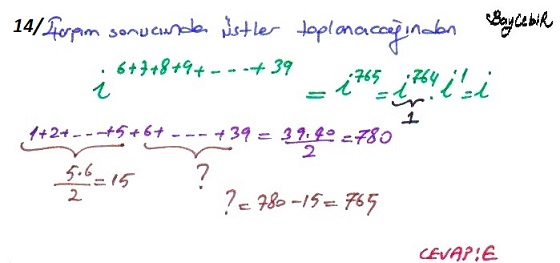 14/ Çarpım sonucunda üstler toplanacağından BayCebir
i^6+7+8+9+----+39 = i^765 = i^764 . i^1 = i
1
1+2+---+5+6+----+39 = 39.40/2 = 780
5.6/2 = 15 ?
? = 780-15 = 765
CEVAP:E